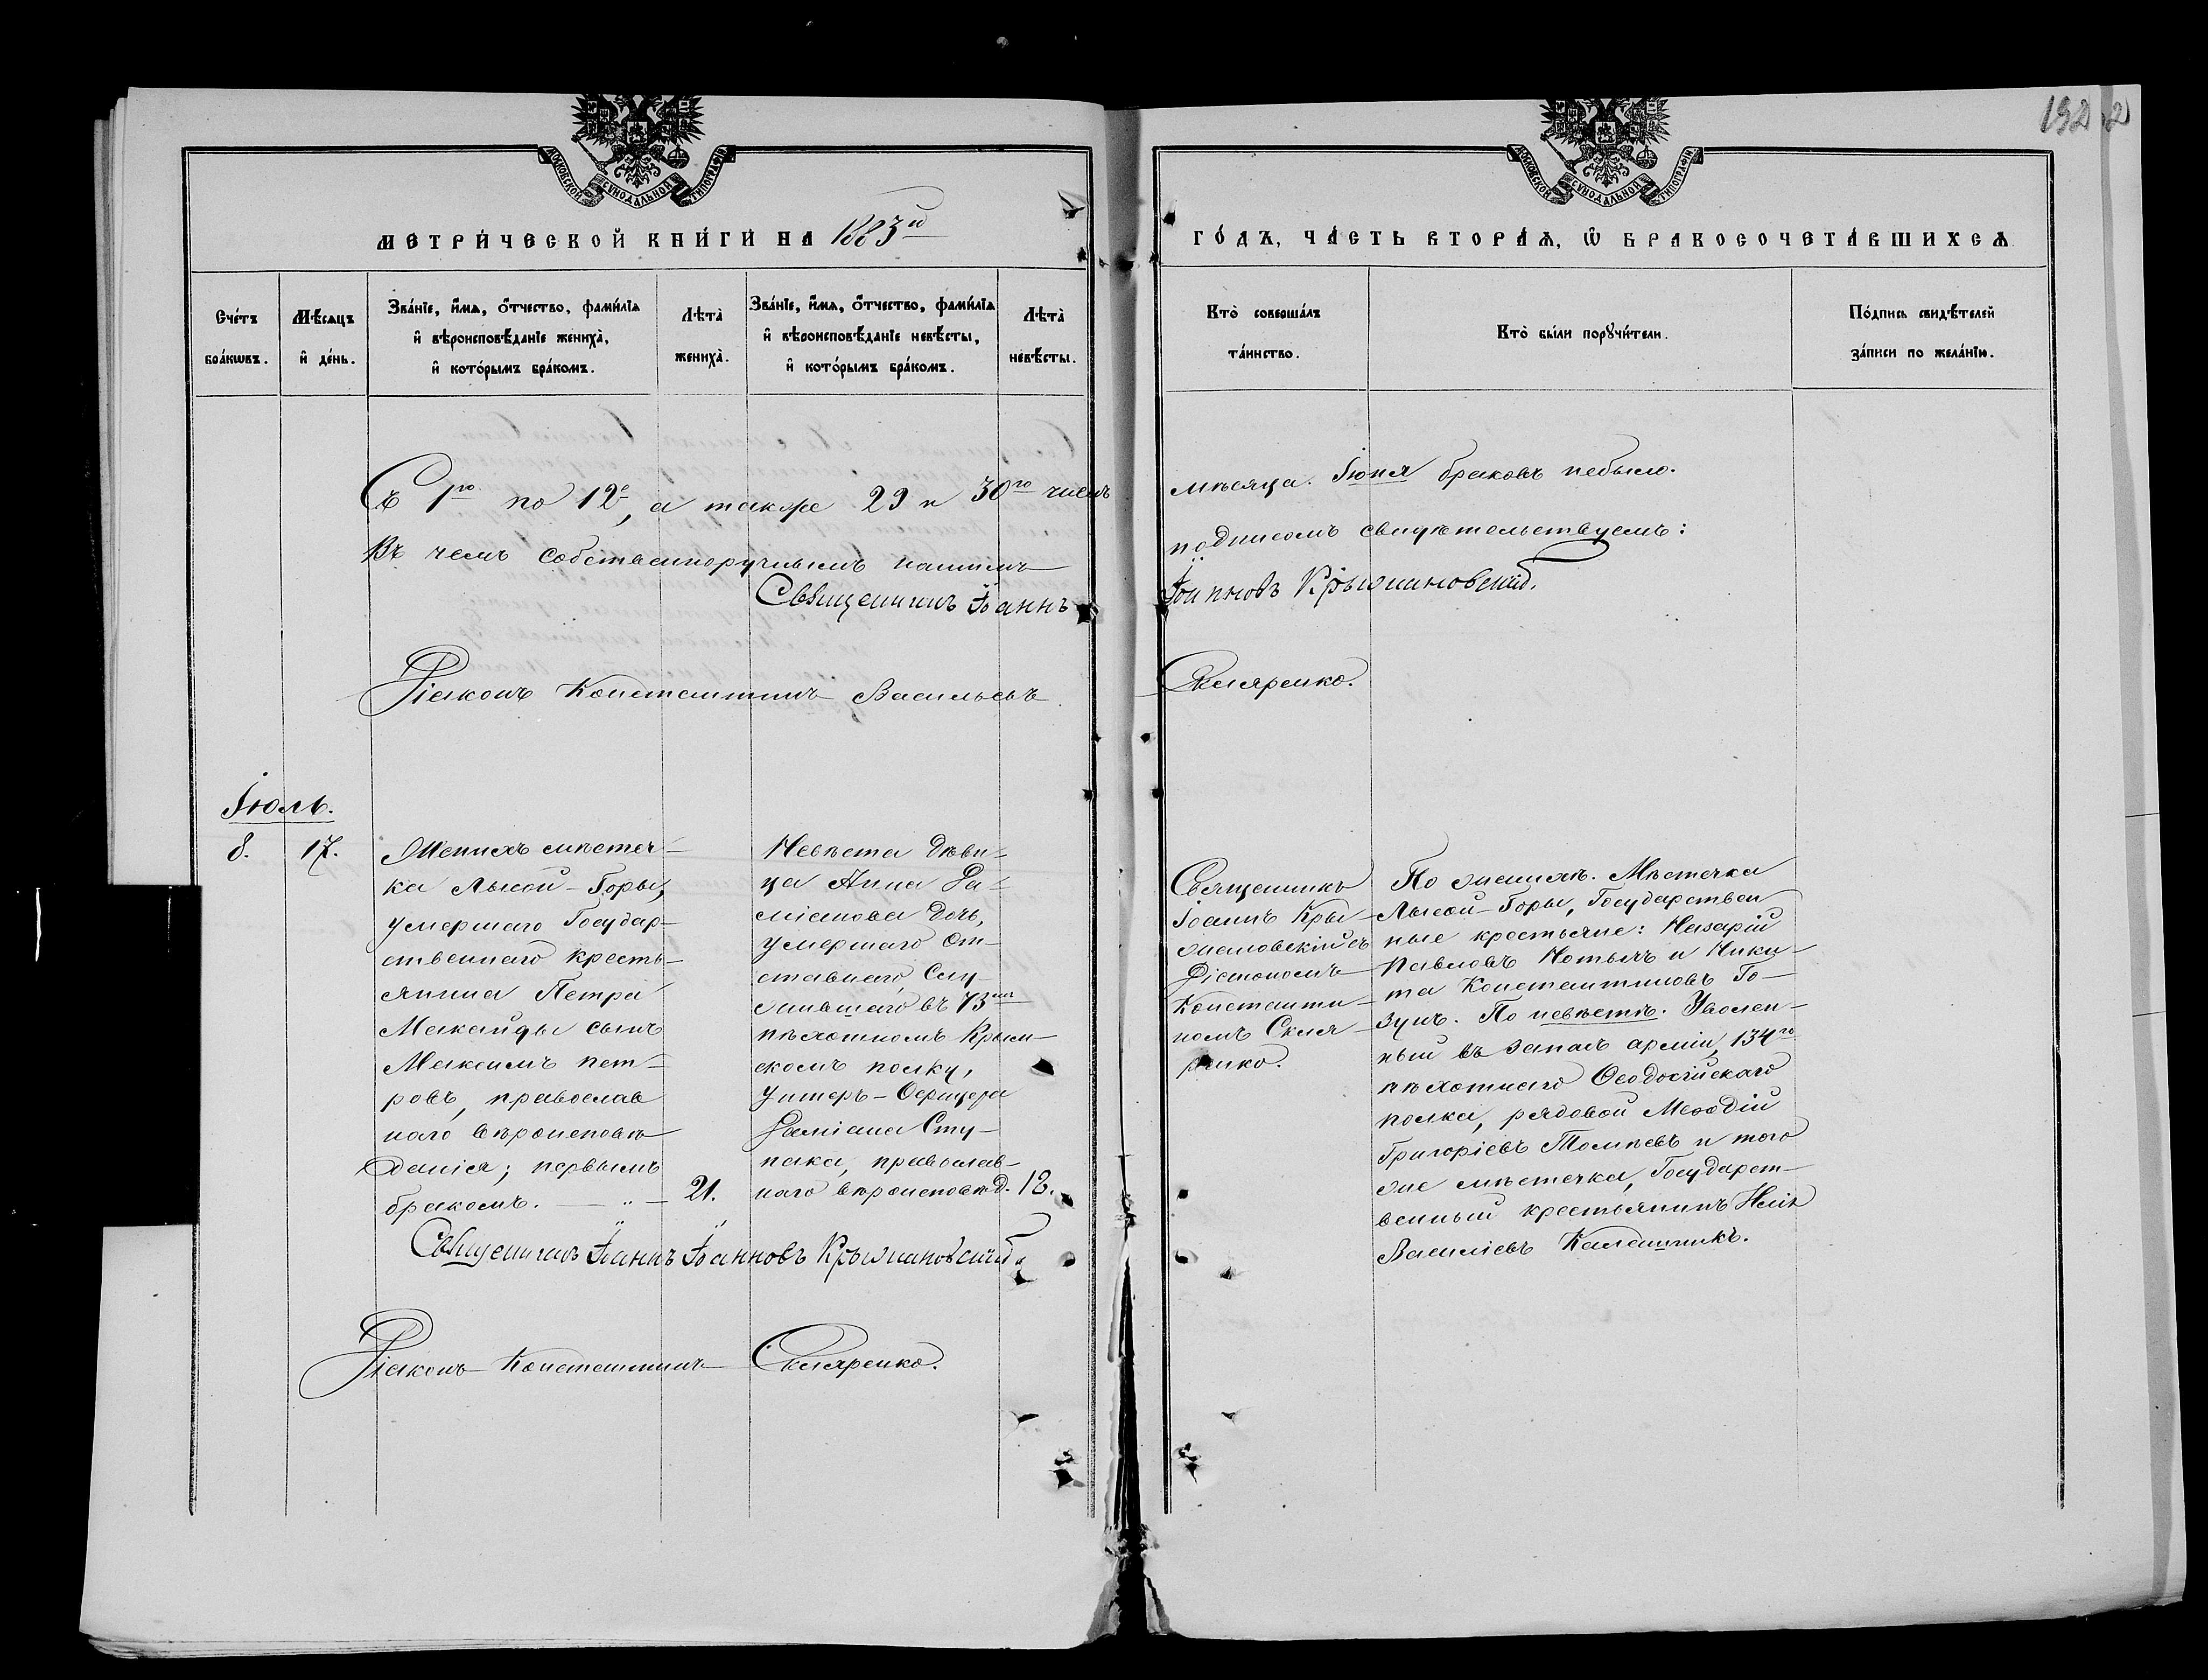 192 2
МОСКОВСКОЙ СѴНОДАЛЬНОЙ ТИПОГРАФІИ
МОСКОВСКОЙ СѴНОДАЛЬНОЙ ТИПОГРАФІИ
МЕТРИ́ЧЕСКОЙ КНИ́ГИ НА 1883й
ГО́ДЪ, ЧА́СТЬ ВТОРА́Я, Ѽ БРАКОСОЧЕТА́ВШИХСЯ
Сче́тъ
бра́кωвъ.
Мѣ́сяцъ
и҆ де́нь.
Зва́нїе, и҆́мя, ѻ҆́тчество, фами́лїя
и҆ вѣроисповѣ́данїе жениха̀,
и҆ кото́рымъ бра́комъ.
Лѣта̀
жениха̀.
Зва́нїе, и҆́мя, ѻ҆́тчество, фами́лїя
и҆ вѣроисповѣ́данїе невѣ́сты,
и҆ кото́рымъ бра́комъ.
Лѣта̀
невѣ́сты.
Кто̀ соверша́лъ
та́инство.
Кто̀ бы́ли порꙋчи́тели.
По́дпись свидѣ́телей
за́писи по жела́нїю.
Съ 1го по 12е, а также 29 и 30го числъ
мѣсяца Іюня браковъ небыло.
Въ чемъ собственноручнымъ нашимъ
подписомъ свидѣтельствуемъ:
Священникъ Іоаннъ
Іоанновъ Крыжановскій.
Діаконъ Константинъ Васильевъ
Скляренко.
Іюль.
8.
17.
Женихъ мѣстеч-
ка Лысой-Горы,
умершаго Государ-
ственнаго кресть-
янина Петра
Макайды сынъ
Максимъ Пет-
ровъ, православ
наго вѣроисповѣ-
данія; первымъ
бракомъ. — 21.
Невѣста дѣви-
ца Анна Да-
міанова дочь,
умершаго от-
ставнаго, слу-
жившаго въ 73мъ
пѣхотномъ Крым-
скомъ полку,
Унтеръ-Офицера
Даміана Сту-
пака, православ-
наго вѣроисповѣд. 18.
Священникъ
Іоаннъ Кры-
жановскій съ
Діакономъ
Константи-
номъ Скля-
ренко.
По женихѣ. Мѣстечка
Лысой-Горы, Государствен
ные крестьяне: Назарій
Павловъ Мотычъ и Ники-
та Константиновъ Го-
зунъ. По невѣстѣ. Уволен-
ный въ запасъ арміи, 134го
пѣхотнаго Ѳеодосійскаго
полка, рядовой Меѳодій
Григоріевъ Толпѣевъ и того
же мѣстечка, Государст-
венный крестьянинъ Илія
Василіевъ Калашникъ.
Священникъ Іоаннъ Іоанновъ Крыжановскій
Діаконъ Константинъ Скляренко.